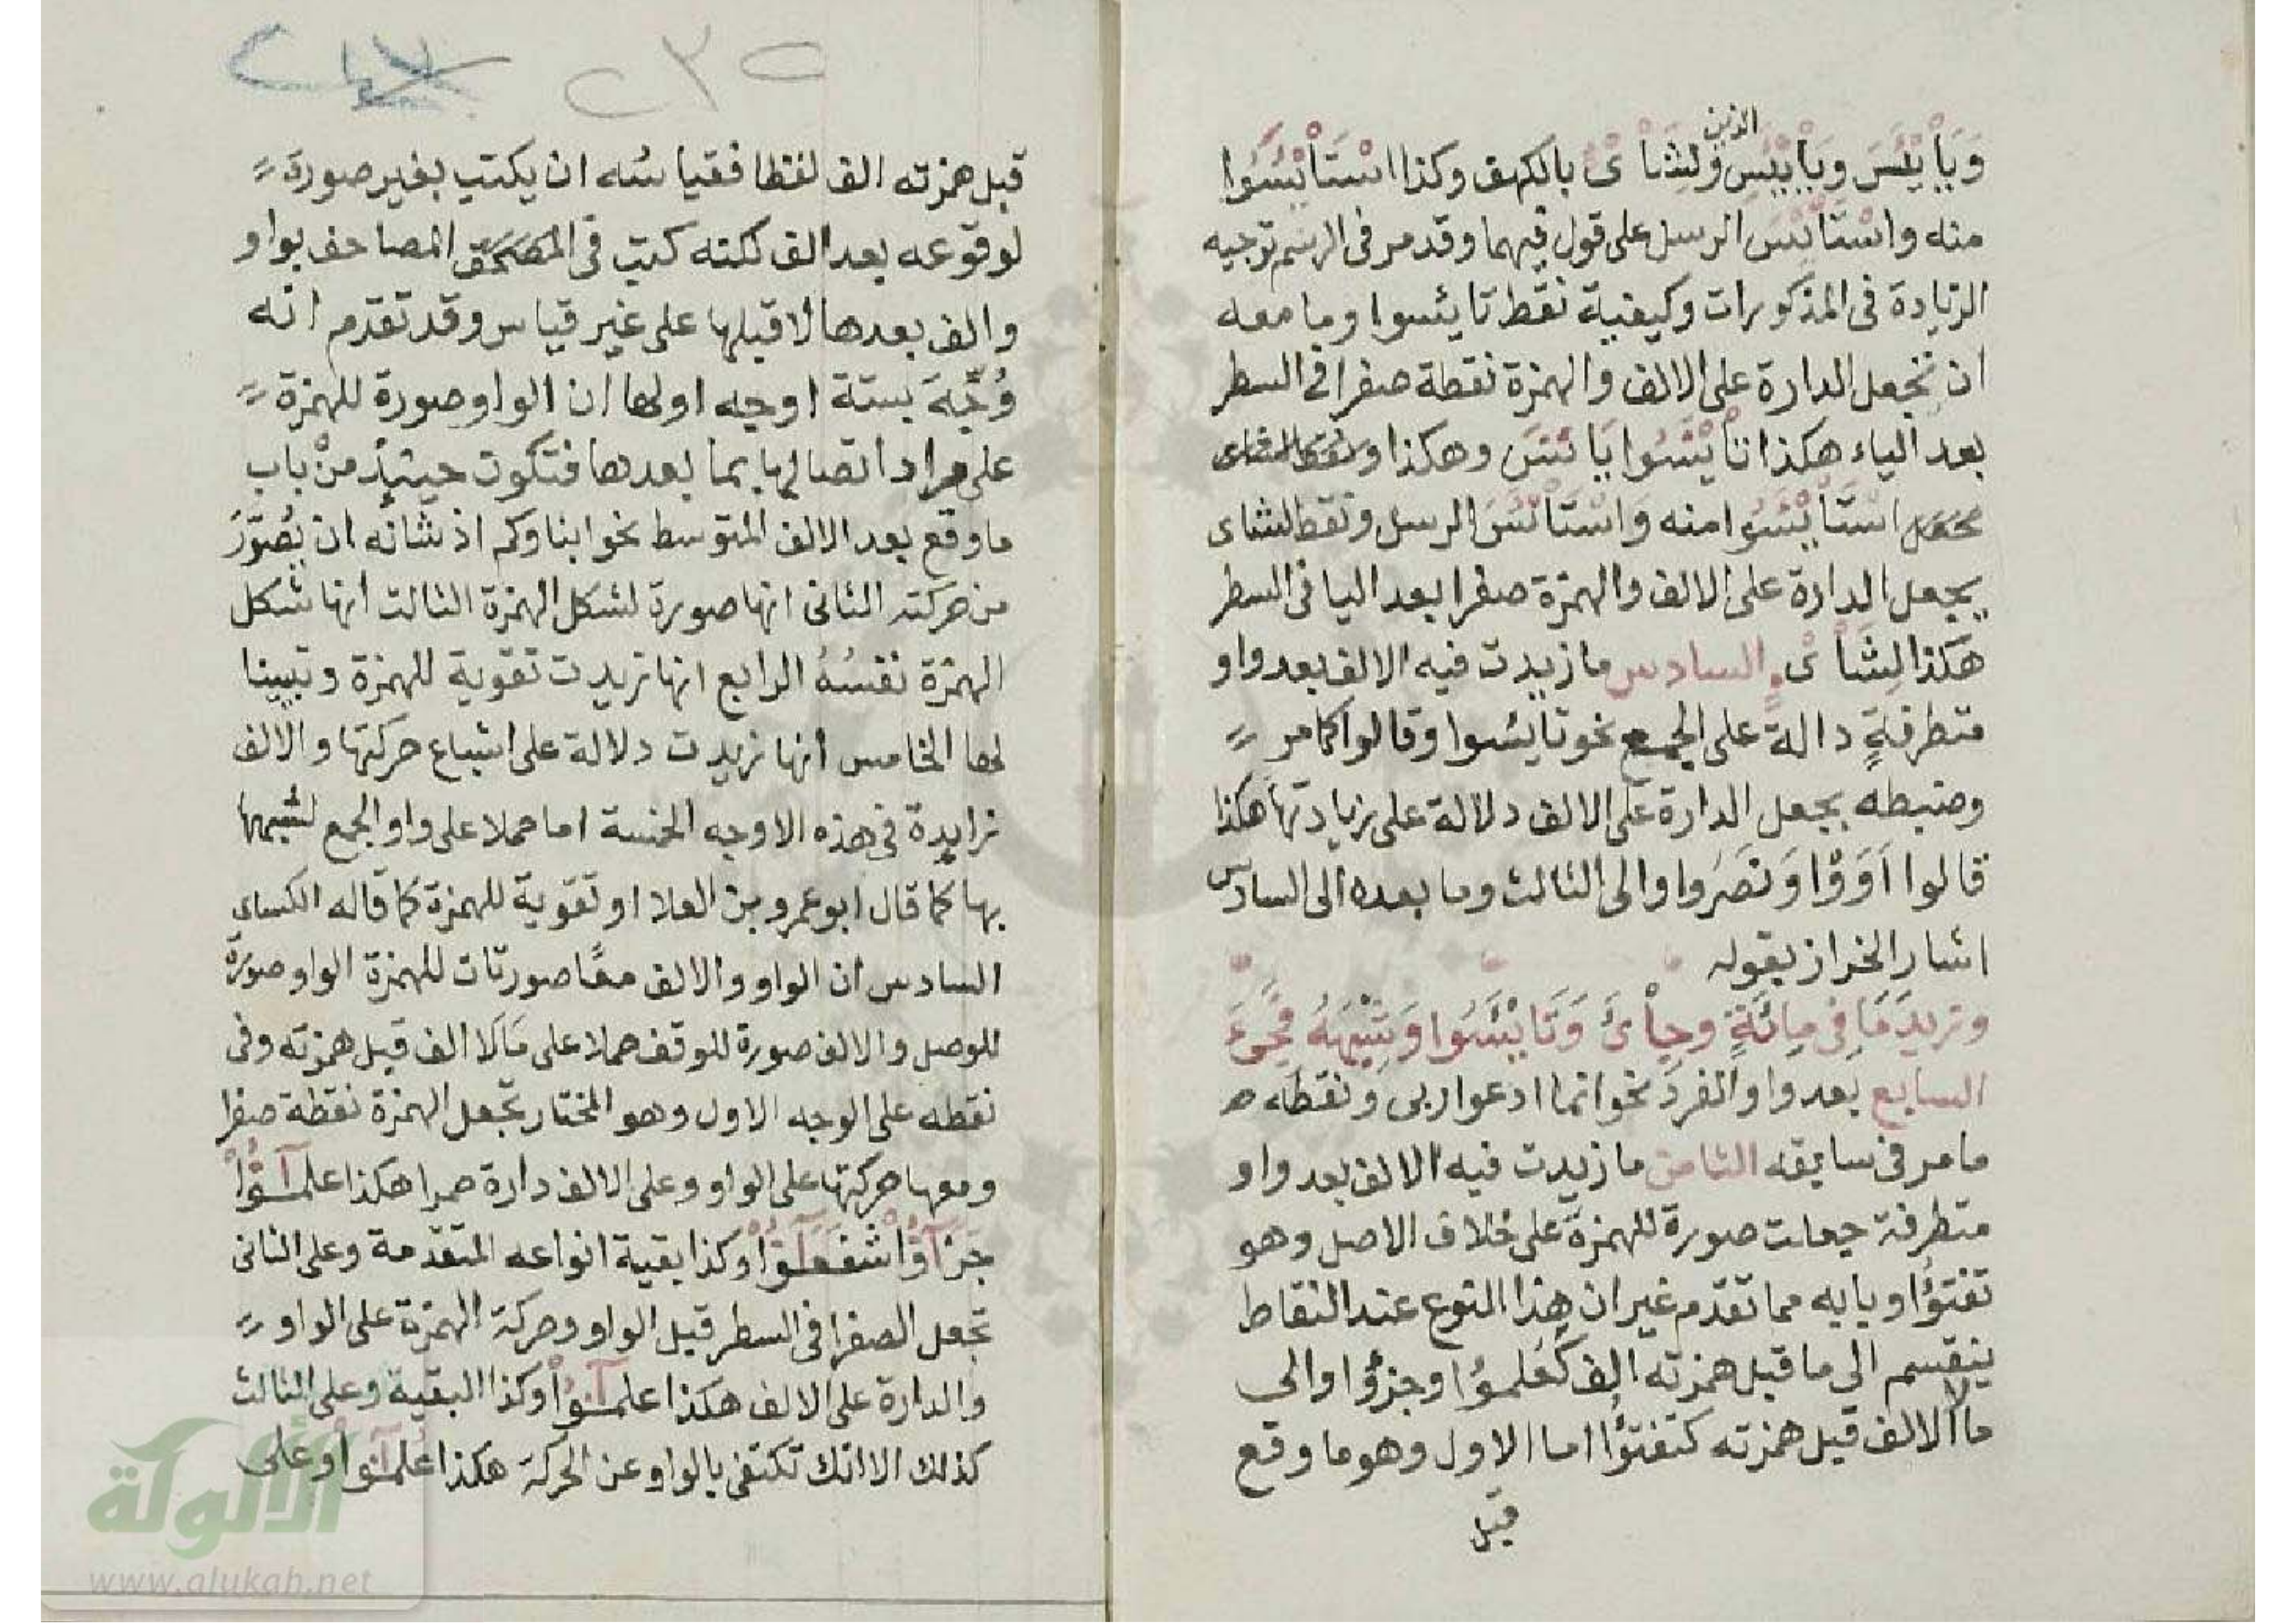 وَيَاْيْئَسَ وَيَاْيْئَسِ الذين وَلِشَاْىْ بالكهف وكذا اسْتَاْيْئسُوا
منه واسْتَاْيْئَسَ الرسل على قول فيهما وقد مر فى الرسم توجيه
الزيادة فى المذكورات وكيفية نقط تايئسوا وما معه
ان تجعل الدارة على الالف والهمزة نقطة صفرا فى السطر
بعد الياء هكذا تَاْيْئَسُوا يَاْيْئَسَ وهكذا
اسْتَاْيْئَسُوا منه وَاسْتَاْيْئَسَ الرسل ونقط لشاى
بجعل الدارة على الالف والهمزة صفرا بعد اليا فى السطر
هكذا لِشَاْىْ السادس ما زيدت فيه الالف بعد واو
متطرفةٍ دالة على الجمع نحو تايئسوا وقالوا كما مر
وضبطه بجعل الدارة على الالف دلالة على زيادتها هكذا
قالوا اَوَوْا وَنَصَرُوا والى الثالث وما بعده الى السادس
اشار الخراز بقوله
وزيدَ مَا فى مِائَةٍ وجِاْىءَ وَتَايْئَسُوا وَشِبْهِهُ مَجِىءَ
السابع بعد واو الفرد نحو انما ادعوا ربى ونقطه
ما مر فى سابقه الثامن ما زيدت فيه الالف بعد واو
متطرفة جعلت صورة للهمزة على خلاف الاصل وهو
تفتؤا وبابه مما تقدم غير ان هذا النوع عند النقاط
ينقسم الى ما قبل همزته الف كَعُلمؤا وجزؤا والى
ما لا الف قبل همزته كتفتؤا اما الاول وهو ما وقع
قبل
٢٣٥
قبل همزته الف لفظا فقياسُه ان يكتب بغير صورة
لوقوعه بعد الف لكنه كتب فى المصاحف بواو
والف بعدها لا قبلها على غير قياس وقد تقدم انه
وُجِّهَ بستة اوجه اولها ان الواو صورة للهمزة
على مراد اتصالها بما بعدها فتكون حينئذ من باب
ما وقع بعد الالف المتوسط نحو ابناوكم اذ شانه ان يُصَوَّرَ
من حركته الثانى انها صورة لشكل الهمزة الثالث انها شكل
الهمزة نفسُهُ الرابع انها زيدت تقوية للهمزة وتبيينا
لها الخامس انها زيدت دلالة على اشباع حركتها والالف
زايدة فى هذه الاوجه الخمسة اما حملا على واو الجمع لشبهها
بها كما قال ابو عمرو بن العلا او تقوية للهمزة كما قاله الكساى
السادس ان الواو والالف معًا صورتان للهمزة الواو صورة
للوصل والالف صورة للوقف حملا على مَا لَا الف قبل همزته وفى
نقطه على الوجه الاول وهو المختار تجعل الهمزة نقطة صفرا
ومعها حركتها على الواو وعلى الالف دارة حمرا هكذا علمـٓـؤُاْ
جَزَآؤُاْ شفعـٓـؤُاْ وكذا بقية انواعه المتقدمة وعلى الثانى
تجعل الصفرا فى السطر قبل الواو وحركة الهمزة على الواو
والدارة على الالف هكذا علمـٓـؤُاْ وكذا البقية وعلى الثالث
كذلك الا انك تكتفى بالواو عن الحركة هكذا عُلمـٓـؤاْ وعلى
الألوكة
www.alukah.net